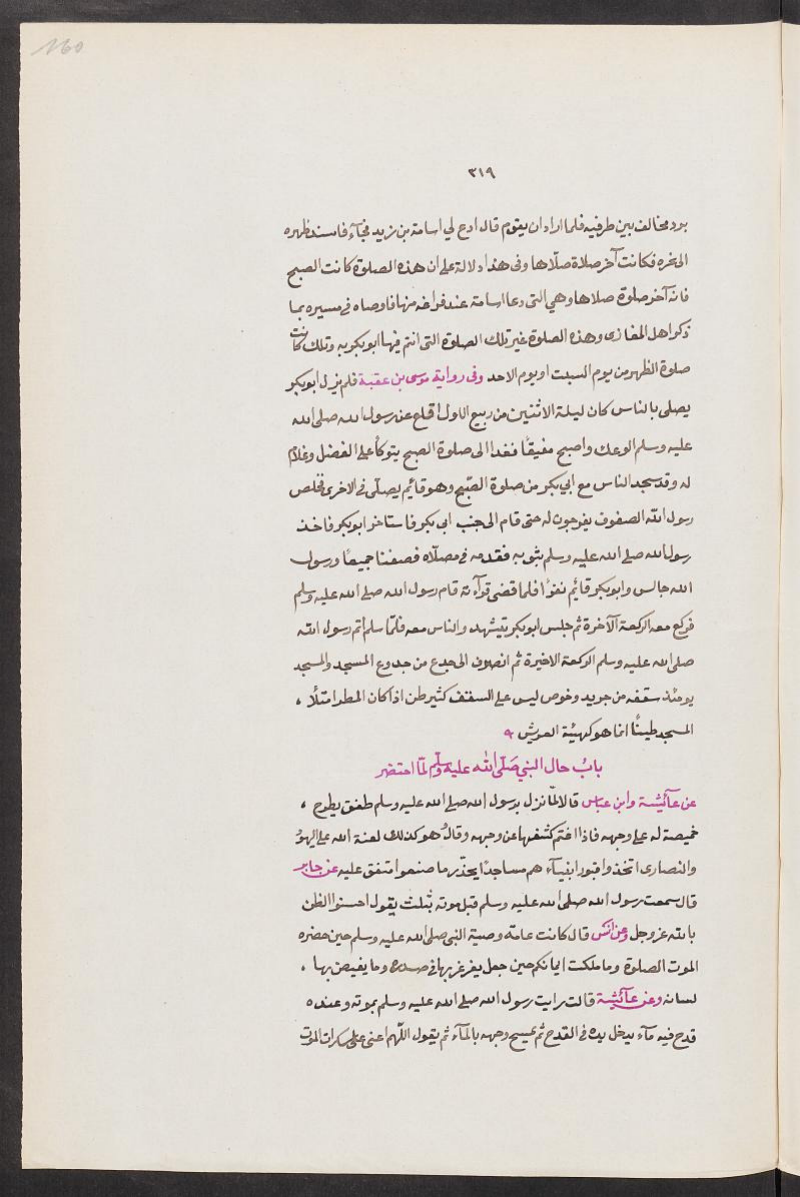 160
٣١٩
برد مخالف بين طرفيه فلما اراد ان يقوم قال ادع لي اسامة بن زيد فجآء فاسند ظهره
الى نحره فكانت آخر صلاة صلّاها وفى هذا دلالة على ان هذه الصلوة كانت الصبح
فانه آخر صلوة صلاها وهي التى دعا اسامة عند فراغه منها فاوصاه فى مسيره بما
ذكر اهل المغازى وهذه الصلوة غير تلك الصلوة التى ائتم فيها ابو بكر به وتلك كانت
صلوة الظهر من يوم السبت او يوم الاحد وفى رواية موسى بن عقبة فلم يزل ابو بكر
يصلى بالناس كان ليلة الاثنين من ربيع الاول اقلع عن رسول الله صلى الله
عليه وسلم الوعك واصبح مفيقًا فغدا الى صلوة الصبح يتوكأ على الفضل وغلام
له وقد سجد الناس مع ابي بكر من صلوة الصّبح وهو قائم يصلّى فى الاخرى فخلص
رسول الله الصفوف يفرجون له حتى قام الى جنب ابى بكر فاستاخر ابو بكر فاخذ
رسول الله صلى الله عليه وسلم بثوبه فقدمه فى مصلّاه فصفنا جميعًا ورسول
الله جالس وابو بكر قائم نقرأ فلما قضى قرآءته قام رسول الله صلى الله عليه وسلم
فركع معه الركعة الآخرة ثم جلس ابو بكر يتشهد والناس معه فلمّا سلم اتم رسول الله
صلى الله عليه وسلم الركعة الاخيرة ثم انصرف الى جذع من جذوع المسجد والمسجد
يومئذ سقفه من جريد وخوص ليس على السقف كثير طن اذا كان المطر امتلأ ،
المسجد طينًا انما هو كهيئة العريش ٩
بابُ حال النبي صَلّى الله عليه وسلم لمّا احتضر
عن عآئيشة وابن عبّاس قالا لمّا نزل برسول الله صلى الله عليه وسلم طفق يطرح ،
خميصة له على وجهه فاذا اغتم كشفها عن وجهه وقال وهو كذلك لعنة الله على اليهود
والنصارى اتخذوا قبور انبيآءهم مساجدًا يحذّر ما صنعوا متفق عليه عن جابر
قال سمعت رسول الله صلى الله عليه وسلم قبل موته بثلث يقول احسنوا الظن
بالله عز وجل وعن انس قال كانت عامّة وصية النبي صلى الله عليه وسلم حين حضره
الموت الصلوة وما ملكت ايمانكم حين جعل يغرغر بها فى صدره وما يفيص بها ،
لسانه وعن عآئيشة قالت رايت رسول الله صلى الله عليه وسلم بموته وعنده
قدح فيه مآء يدخل يده فى القدح ثم يمسح وجهه بالمآء ثم يقول اللّهم اعنى على سكرات الموت